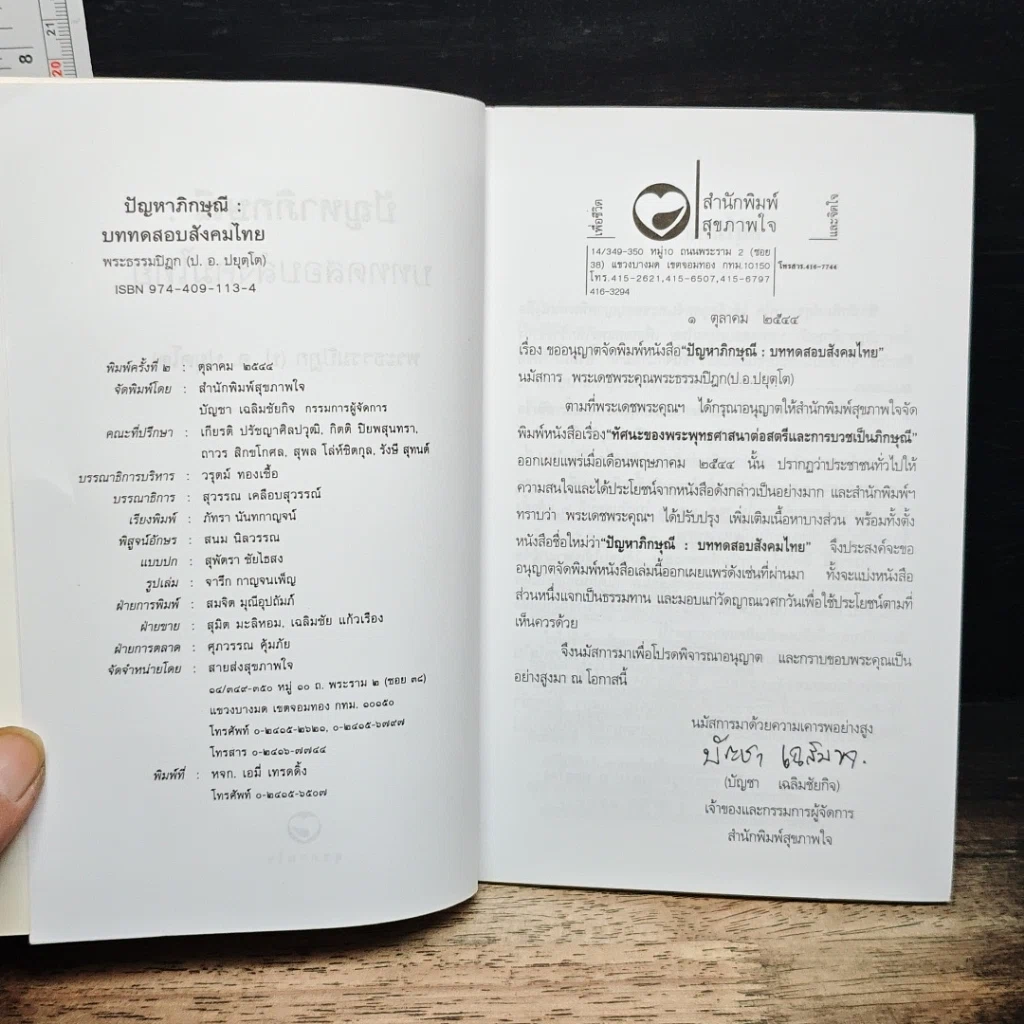 21
8
20
ปัญหาภิกษุณี :
บททดสอบสังคมไทย
พระธรรมปิฎก (ป. อ. ปยุตฺโต)
ISBN 974-409-113-4
พิมพ์ครั้งที่ ๒ : ตุลาคม ๒๕๔๔
จัดพิมพ์โดย : สำนักพิมพ์สุขภาพใจ
บัญชา เฉลิมชัยกิจ กรรมการผู้จัดการ
คณะที่ปรึกษา : เกียรติ ปรัชญาศิลปวุฒิ, กิตติ ปิยพสุนทรา,
ถาวร สิกขโกศล, สุพล โล่ห์ชิตกุล, รังษี สุทนต์
บรรณาธิการบริหาร : วรุตม์ ทองเชื้อ
บรรณาธิการ : สุวรรณ เคลือบสุวรรณ์
เรียงพิมพ์ : ภัทรา นันทกาญจน์
พิสูจน์อักษร : สนม นิลวรรณ
แบบปก : สุพัตรา ชัยไธสง
รูปเล่ม : จารึก กาญจนเพ็ญ
ฝ่ายการพิมพ์ : สมจิต มุณีอุปถัมภ์
ฝ่ายขาย : สุมิต มะลิหอม, เฉลิมชัย แก้วเรือง
ฝ่ายการตลาด : ศุภวรรณ คุ้มภัย
จัดจำหน่ายโดย : สายส่งสุขภาพใจ
๑๔/๓๔๙-๓๕๐ หมู่ ๑๐ ถ. พระราม ๒ (ซอย ๓๘)
แขวงบางมด เขตจอมทอง กทม. ๑๐๑๕๐
โทรศัพท์ ๐-๒๔๑๕-๒๖๒๑, ๐-๒๔๑๕-๖๗๙๗
โทรสาร ๐-๒๔๑๖-๗๗๔๔
พิมพ์ที่ : หจก. เอมี่ เทรดดิ้ง
โทรศัพท์ ๐-๒๔๑๕-๖๕๐๗
เพื่อชีวิต
สำนักพิมพ์
สุขภาพใจ
และจิตใจ
14/349-350 หมู่10 ถนนพระราม 2 (ซอย
38) แขวงบางมด เขตจอมทอง กทม.10150
โทร.415-2621,415-6507,415-6797
416-3294
โทรสาร.416-7744
๑ ตุลาคม ๒๕๔๔
เรื่อง ขออนุญาตจัดพิมพ์หนังสือ“ปัญหาภิกษุณี : บททดสอบสังคมไทย”
นมัสการ พระเดชพระคุณพระธรรมปิฎก(ป.อ.ปยุตฺโต)
ตามที่พระเดชพระคุณฯ ได้กรุณาอนุญาตให้สำนักพิมพ์สุขภาพใจจัด
พิมพ์หนังสือเรื่อง“ทัศนะของพระพุทธศาสนาต่อสตรีและการบวชเป็นภิกษุณี”
ออกเผยแพร่เมื่อเดือนพฤษภาคม ๒๕๔๔ นั้น ปรากฏว่าประชาชนทั่วไปให้
ความสนใจและได้ประโยชน์จากหนังสือดังกล่าวเป็นอย่างมาก และสำนักพิมพ์ฯ
ทราบว่า พระเดชพระคุณฯ ได้ปรับปรุง เพิ่มเติมเนื้อหาบางส่วน พร้อมทั้งตั้ง
หนังสือชื่อใหม่ว่า“ปัญหาภิกษุณี : บททดสอบสังคมไทย” จึงประสงค์จะขอ
อนุญาตจัดพิมพ์หนังสือเล่มนี้ออกเผยแพร่ดังเช่นที่ผ่านมา ทั้งจะแบ่งหนังสือ
ส่วนหนึ่งแจกเป็นธรรมทาน และมอบแก่วัดญาณเวศกวันเพื่อใช้ประโยชน์ตามที่
เห็นควรด้วย
จึงนมัสการมาเพื่อโปรดพิจารณาอนุญาต และกราบขอบพระคุณเป็น
อย่างสูงมา ณ โอกาสนี้
นมัสการมาด้วยความเคารพอย่างสูง
(บัญชา เฉลิมชัยกิจ)
เจ้าของและกรรมการผู้จัดการ
สำนักพิมพ์สุขภาพใจ